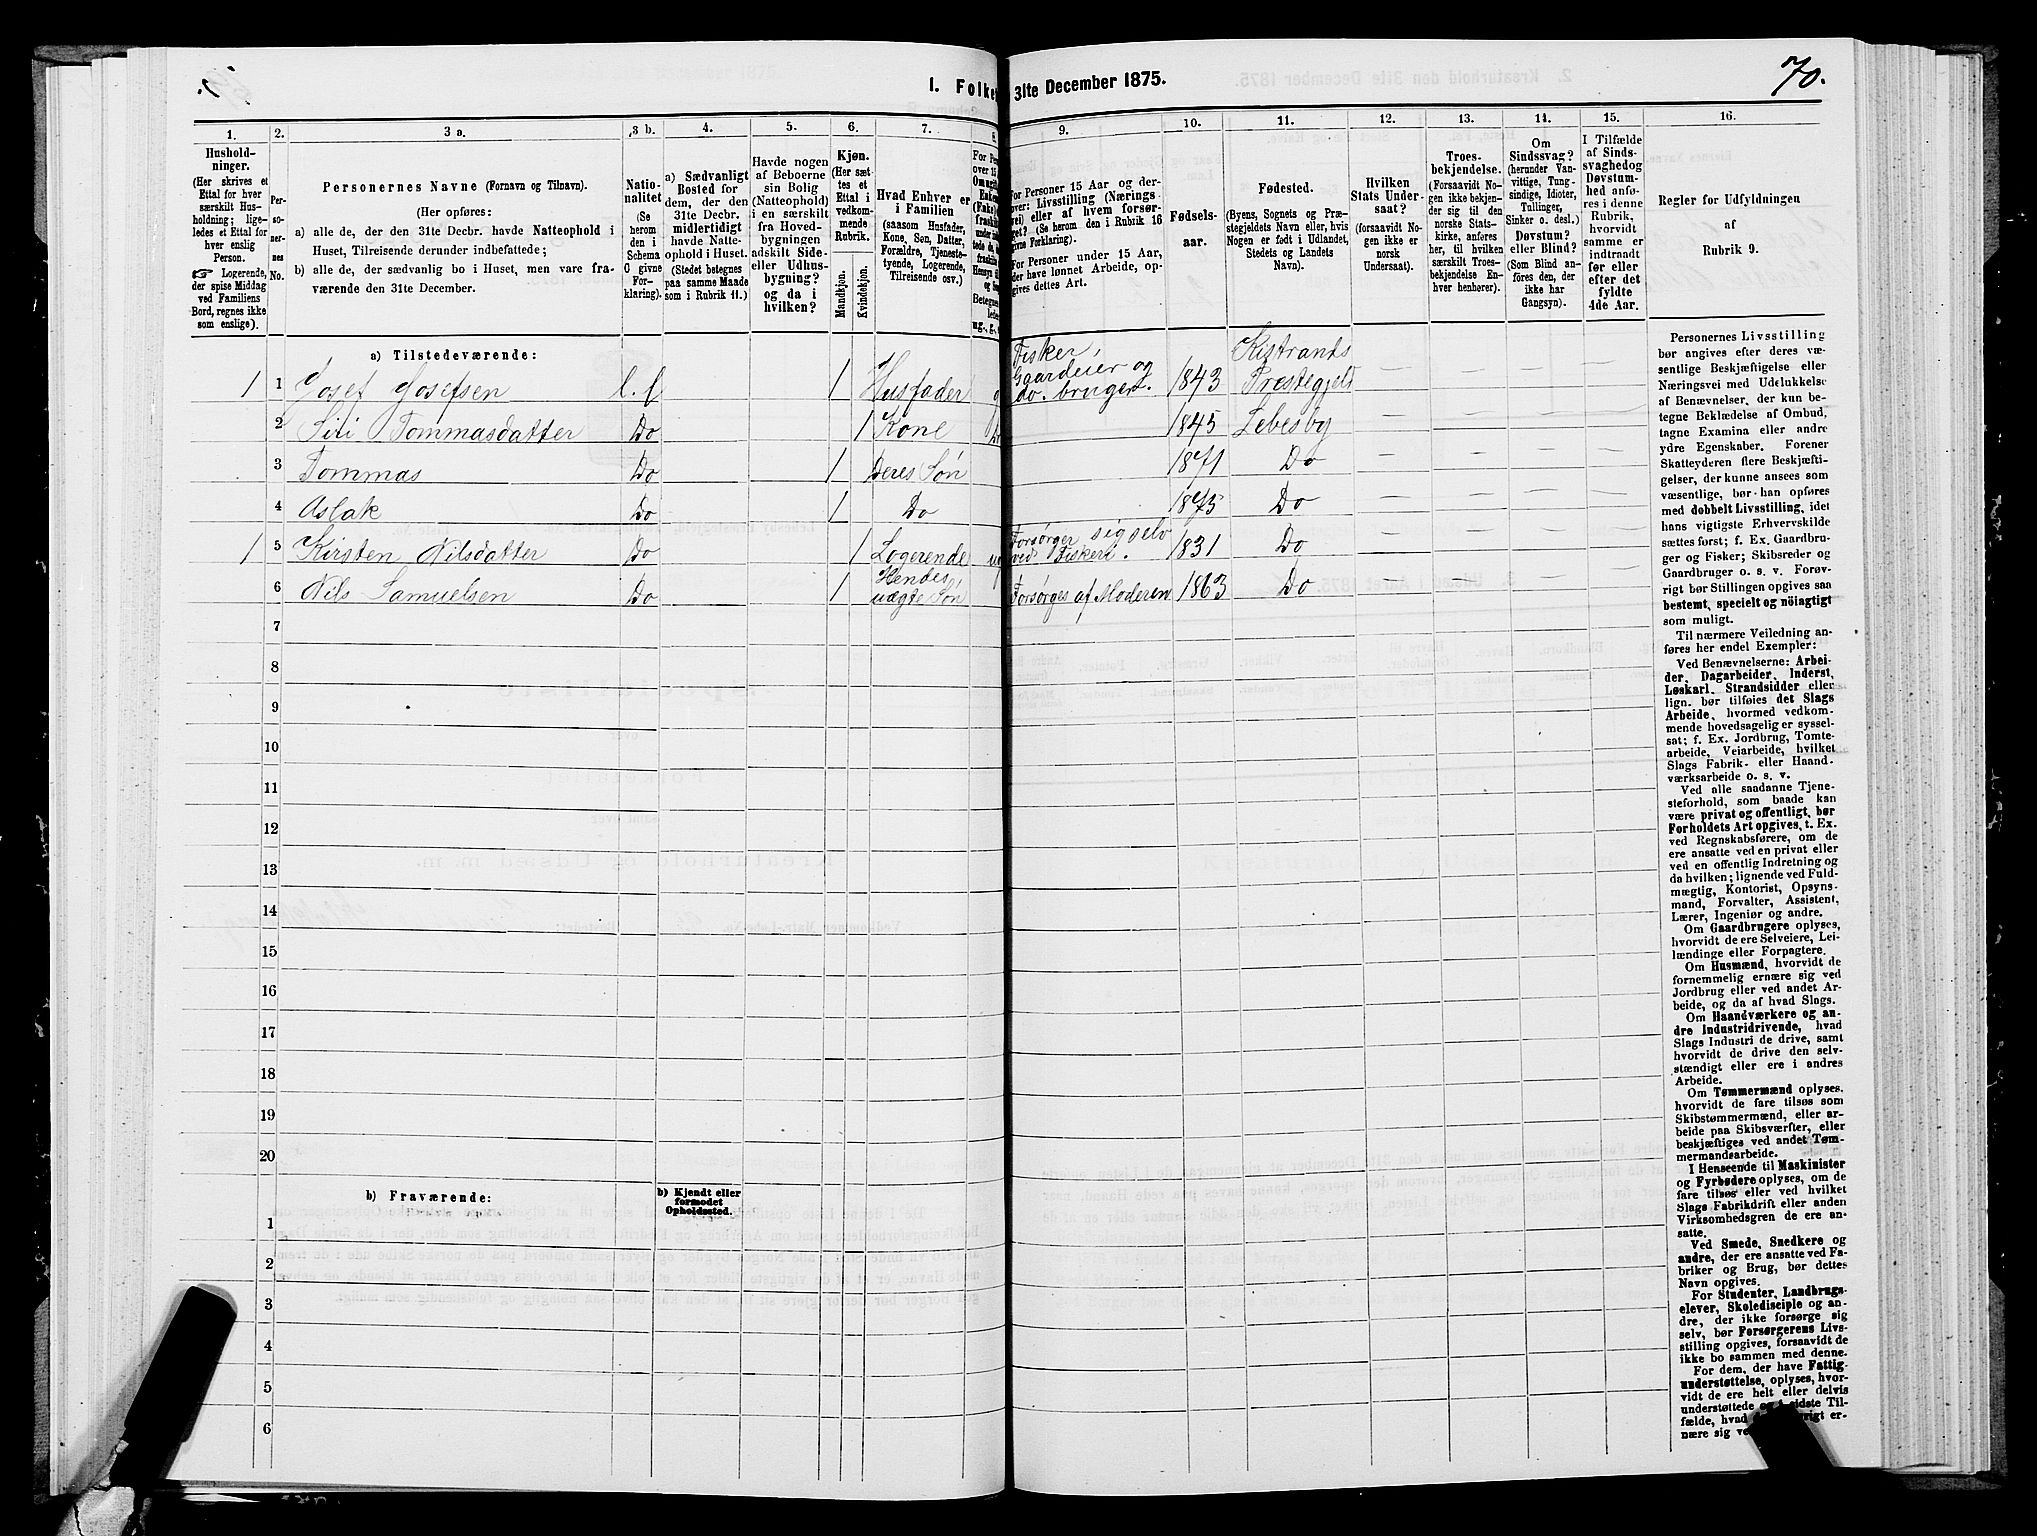 1. Folke
31te December 1875.
70.
1.
2.
3 a.
3 b.
4.
5.
6.
7.
8.
9.
10.
11.
12.
13.
14.
15.
16.
Hushold-
ninger.
(Her skrives et
Ettal for hver
særskilt Hus-
holdning; lige-
ledes et Ettal for
hver enslig
Person.
☞ Logerende,
der spise Middag
ved Familiens
Bord, regnes ikke
som enslige).
Per-
so-
ner-
nes
No.
Personernes Navne (Fornavn og Tilnavn).
(Her opføres:
a) alle de, der den 31te Decbr. havde Natteophold i
Huset, Tilreisende derunder indbefattede;
b) alle de, der sædvanlig bo i Huset, men vare fra-
værende den 31te December.
Natio-
nalitet
(Se
herom
den i
Schema
O givne
For-
klaring).
a) Sædvanligt
Bosted for
dem, der den
31te Decbr.
midlertidigt
havde Natte-
ophold i Huset.
(Stedet betegnes
paa samme Maade
som i Rubrik 11.)
Havde nogen
af Beboerne
sin Bolig
(Natteophold)
i en særskilt
fra Hoved-
bygningen
adskilt Side-
eller Udhus-
bygning?
og da i
hvilken?
Kjøn.
(Her sæt-
tes et
Ettal i
vedkom-
mende
Rubrik.
Mandkjøn.
Kvindekjøn.
Hvad Enhver er
i Familien
(saasom Husfader,
Kone, Søn, Datter,
Forældre, Tjeneste-
tyende, Logerende,
Tilreisende osv.)
For Personer 15 Aar og der-
over: Livsstilling (Nærings-
vei) eller af hvem forsør-
get? (Se herom den i Rubrik 16
givne Forklaring).
For Personer under 15 Aar,
der have lønnet Arbeide, op-
gives dettes Art.
Fødsels-
aar.
Fødested.
(Byens, Sognets og Præ-
stegjeldets Navn eller, hvis
Nogen er født i Udlandet,
Stedets og Landets
Navn).
Hvilken
Stats Under-
saat?
(forsaavidt No-
gen ikke er
norsk
Undersaat).
Troes-
bekjendelse.
(Forsaavidt No-
gen ikke bekjen-
der sig til den
norske Stats-
kirke, anføres
her, til hvilken
særskilt Troes-
bekjendelse En-
hver henhører).
Om
Sindssvag?
(herunder Van-
vittige, Tung-
sindige, Idioter,
Tullinger,
Sinker o. desl.)
Døvstum?
eller Blind?
(Som Blind an-
føres den, der
ikke har
Gangsyn).
I Tilfælde
af Sinds-
svaghedog
Døvstum-
hed anfø-
res i denne
Rubrik,
hvorvidt
samme er
indtraadt
før eller
efter det
fyldte
4de Aar.
Regler for Udfyldningen
af
Rubrik 9.
a) Tilstedeværende:
1 1 Josef Josefsen l. f 1 Husfader Fisker, Gaardeier og do. bruger. 1843 Kistrands Præstegjeld — — — —
2 Siri Tommasdatter Do 1 Kone 1845 Lebesby — — — —
3 Tommas Do 1 Deres Søn 1871 Do — — — —
4 Aslak Do 1 Do 1875 Do — — — —
1 5 Kirsten Nilsdatter Do 1 Logerende Forsørger sig selv ved Fiskeri. 1831 Do — — — —
6 Nils Samuelsen Do 1 Hendes uægte Søn Forsørges af Moderen 1863 Do — — — —
7
8
9
10
11
12
13
14
15
16
17
18
19
20
b) Fraværende:
b) Kjendt eller
formodet
Opholdssted.
1
2
3
4
5
6
Personernes Livsstilling
bør angives efter deres væ-
sentlige Beskjæftigelse eller
Næringsvei med Udelukkelse
af Benævnelser, der kun be-
tegne Beklædelse af Ombud,
tagne Examina eller andre
ydre Egenskaber. Forener
Skatteyderen flere Beskjæfti-
gelser, der kunne ansees som
væsentlige, bør han opføres
med dobbelt Livsstilling, idet
hans vigtigste Erhvervskilde
sættes først; f. Ex. Gaardbru-
ger og Fisker; Skibsreder og
Gaardbruger o. s. v. Forøv-
rigt bør Stillingen opgives saa
bestemt, specielt og nöiagtigt
som muligt.
Til nærmere Veiledning an-
føres her endel Exempler:
Ved Benævnelserne: Arbei-
der, Dagarbeider, Inderst,
Løskarl, Strandsidder eller
lign. bør tilføies det Slags
Arbeide, hvormed vedkom-
mende hovedsagelig er syssel-
sat; f. Ex. Jordbrug, Tomte-
arbeide, Veiarbeide, hvilket
Slags Fabrik- eller Haand-
værksarbeide o. s. v.
Ved alle saadanne Tjene-
steforhold, som baade kan
være privat og offentligt, bør
Forholdets Art opgives, t. Ex.
ved Regnskabsførere, om de
ere ansatte ved en privat eller
ved en offentlig Indretning og
da hvilken; lignende ved Fuld-
mægtig, Kontorist, Opsyns-
mand, Forvalter, Assistent,
Lærer, Ingeniør og andre.
Om Gaardbrugere oplyses,
hvorvidt de ere Selveiere, Lei-
lændinge eller Forpagtere.
Om Husmænd, hvorvidt de
fornemmelig ernære sig ved
Jordbrug eller ved andet Ar-
beide, og da af hvad Slags.
Om Haandværkere og an-
dre Industridrivende, hvad
Slags Industri de drive, samt
hvorvidt de drive den selv-
stændigt eller ere i andres
Arbeide.
Om Tømmermænd oplyses,
hvorvidt de fare tilsøs som
Skibstømmermænd, eller ar-
beide paa Skibsværfter, eller
beskjæftiges ved andet Tøm-
mermandsarbeide.
I Henseende til Maskinister
og Fyrbødere oplyses, om de
fare tilsøs eller ved hvilket
Slags Fabrikdrift eller anden
Virksomhedsgren de ere an-
satte.
Ved Smede, Snedkere og
andre, der ere ansatte ved Fa-
briker og Brug, bør dettes
Navn opgives.
For Studenter, Landbrugs-
elever, Skoledisciple og an-
dre, der ikke forsørge sig
selv, bør Forsørgerens Livs-
stilling opgives, forsaavidt de
ikke bo sammen med denne.
For dem, der have Fattig-
understøttelse, oplyses, hvor-
vidt de ere helt eller delvis
understøttede og i sidste Til-
fælde, hvad
nære sig